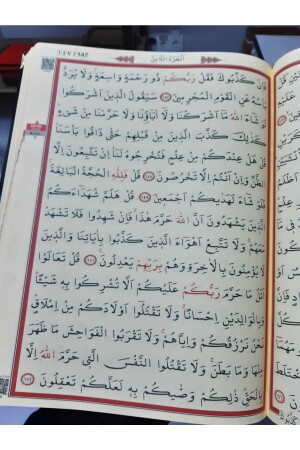 الجزء الثامن
١٤٧
فَاِنْ كَذَّبُوكَ فَقُلْ رَبُّكُمْ ذُو رَحْمَةٍ وَاسِعَةٍ وَلَا يُرَدُّ
بَأْسُهُ عَنِ الْقَوْمِ الْمُجْرِمِينَ ﴿١٤٧﴾ سَيَقُولُ الَّذِينَ اَشْرَكُوا
لَوْ شَاءَ اللّٰهُ مَا اَشْرَكْنَا وَلَا اٰبَاؤُنَا وَلَا حَرَّمْنَا مِنْ شَيْءٍ
كَذٰلِكَ كَذَّبَ الَّذِينَ مِنْ قَبْلِهِمْ حَتّٰى ذَاقُوا بَأْسَنَا
قُلْ هَلْ عِنْدَكُمْ مِنْ عِلْمٍ فَتُخْرِجُوهُ لَنَا اِنْ تَتَّبِعُونَ اِلَّا
الظَّنَّ وَاِنْ اَنْتُمْ اِلَّا تَخْرُصُونَ ﴿١٤٨﴾ قُلْ فَلِلّٰهِ الْحُجَّةُ الْبَالِغَةُ
فَلَوْ شَاءَ لَهَدٰيكُمْ اَجْمَعِينَ ﴿١٤٩﴾ قُلْ هَلُمَّ شُهَدَاءَكُمُ
الَّذِينَ يَشْهَدُونَ اَنَّ اللّٰهَ حَرَّمَ هٰذَا فَاِنْ شَهِدُوا فَلَا تَشْهَدْ
مَعَهُمْ وَلَا تَتَّبِعْ اَهْوَاءَ الَّذِينَ كَذَّبُوا بِاٰيَاتِنَا وَالَّذِينَ
لَا يُؤْمِنُونَ بِالْاٰخِرَةِ وَهُمْ بِرَبِّهِمْ يَعْدِلُونَ ﴿١٥٠﴾ قُلْ تَعَالَوْا
اَتْلُ مَا حَرَّمَ رَبُّكُمْ عَلَيْكُمْ اَلَّا تُشْرِكُوا بِهِ شَيْئًا
وَبِالْوَالِدَيْنِ اِحْسَانًا وَلَا تَقْتُلُوا اَوْلَادَكُمْ مِنْ اِمْلَاقٍ
نَحْنُ نَرْزُقُكُمْ وَاِيَّاهُمْ وَلَا تَقْرَبُوا الْفَوَاحِشَ مَا ظَهَرَ
مِنْهَا وَمَا بَطَنَ وَلَا تَقْتُلُوا النَّفْسَ الَّتِي حَرَّمَ اللّٰهُ اِلَّا
بِالْحَقِّ ذٰلِكُمْ وَصّٰيكُمْ بِهِ لَعَلَّكُمْ تَعْقِلُونَ ﴿١٥١﴾